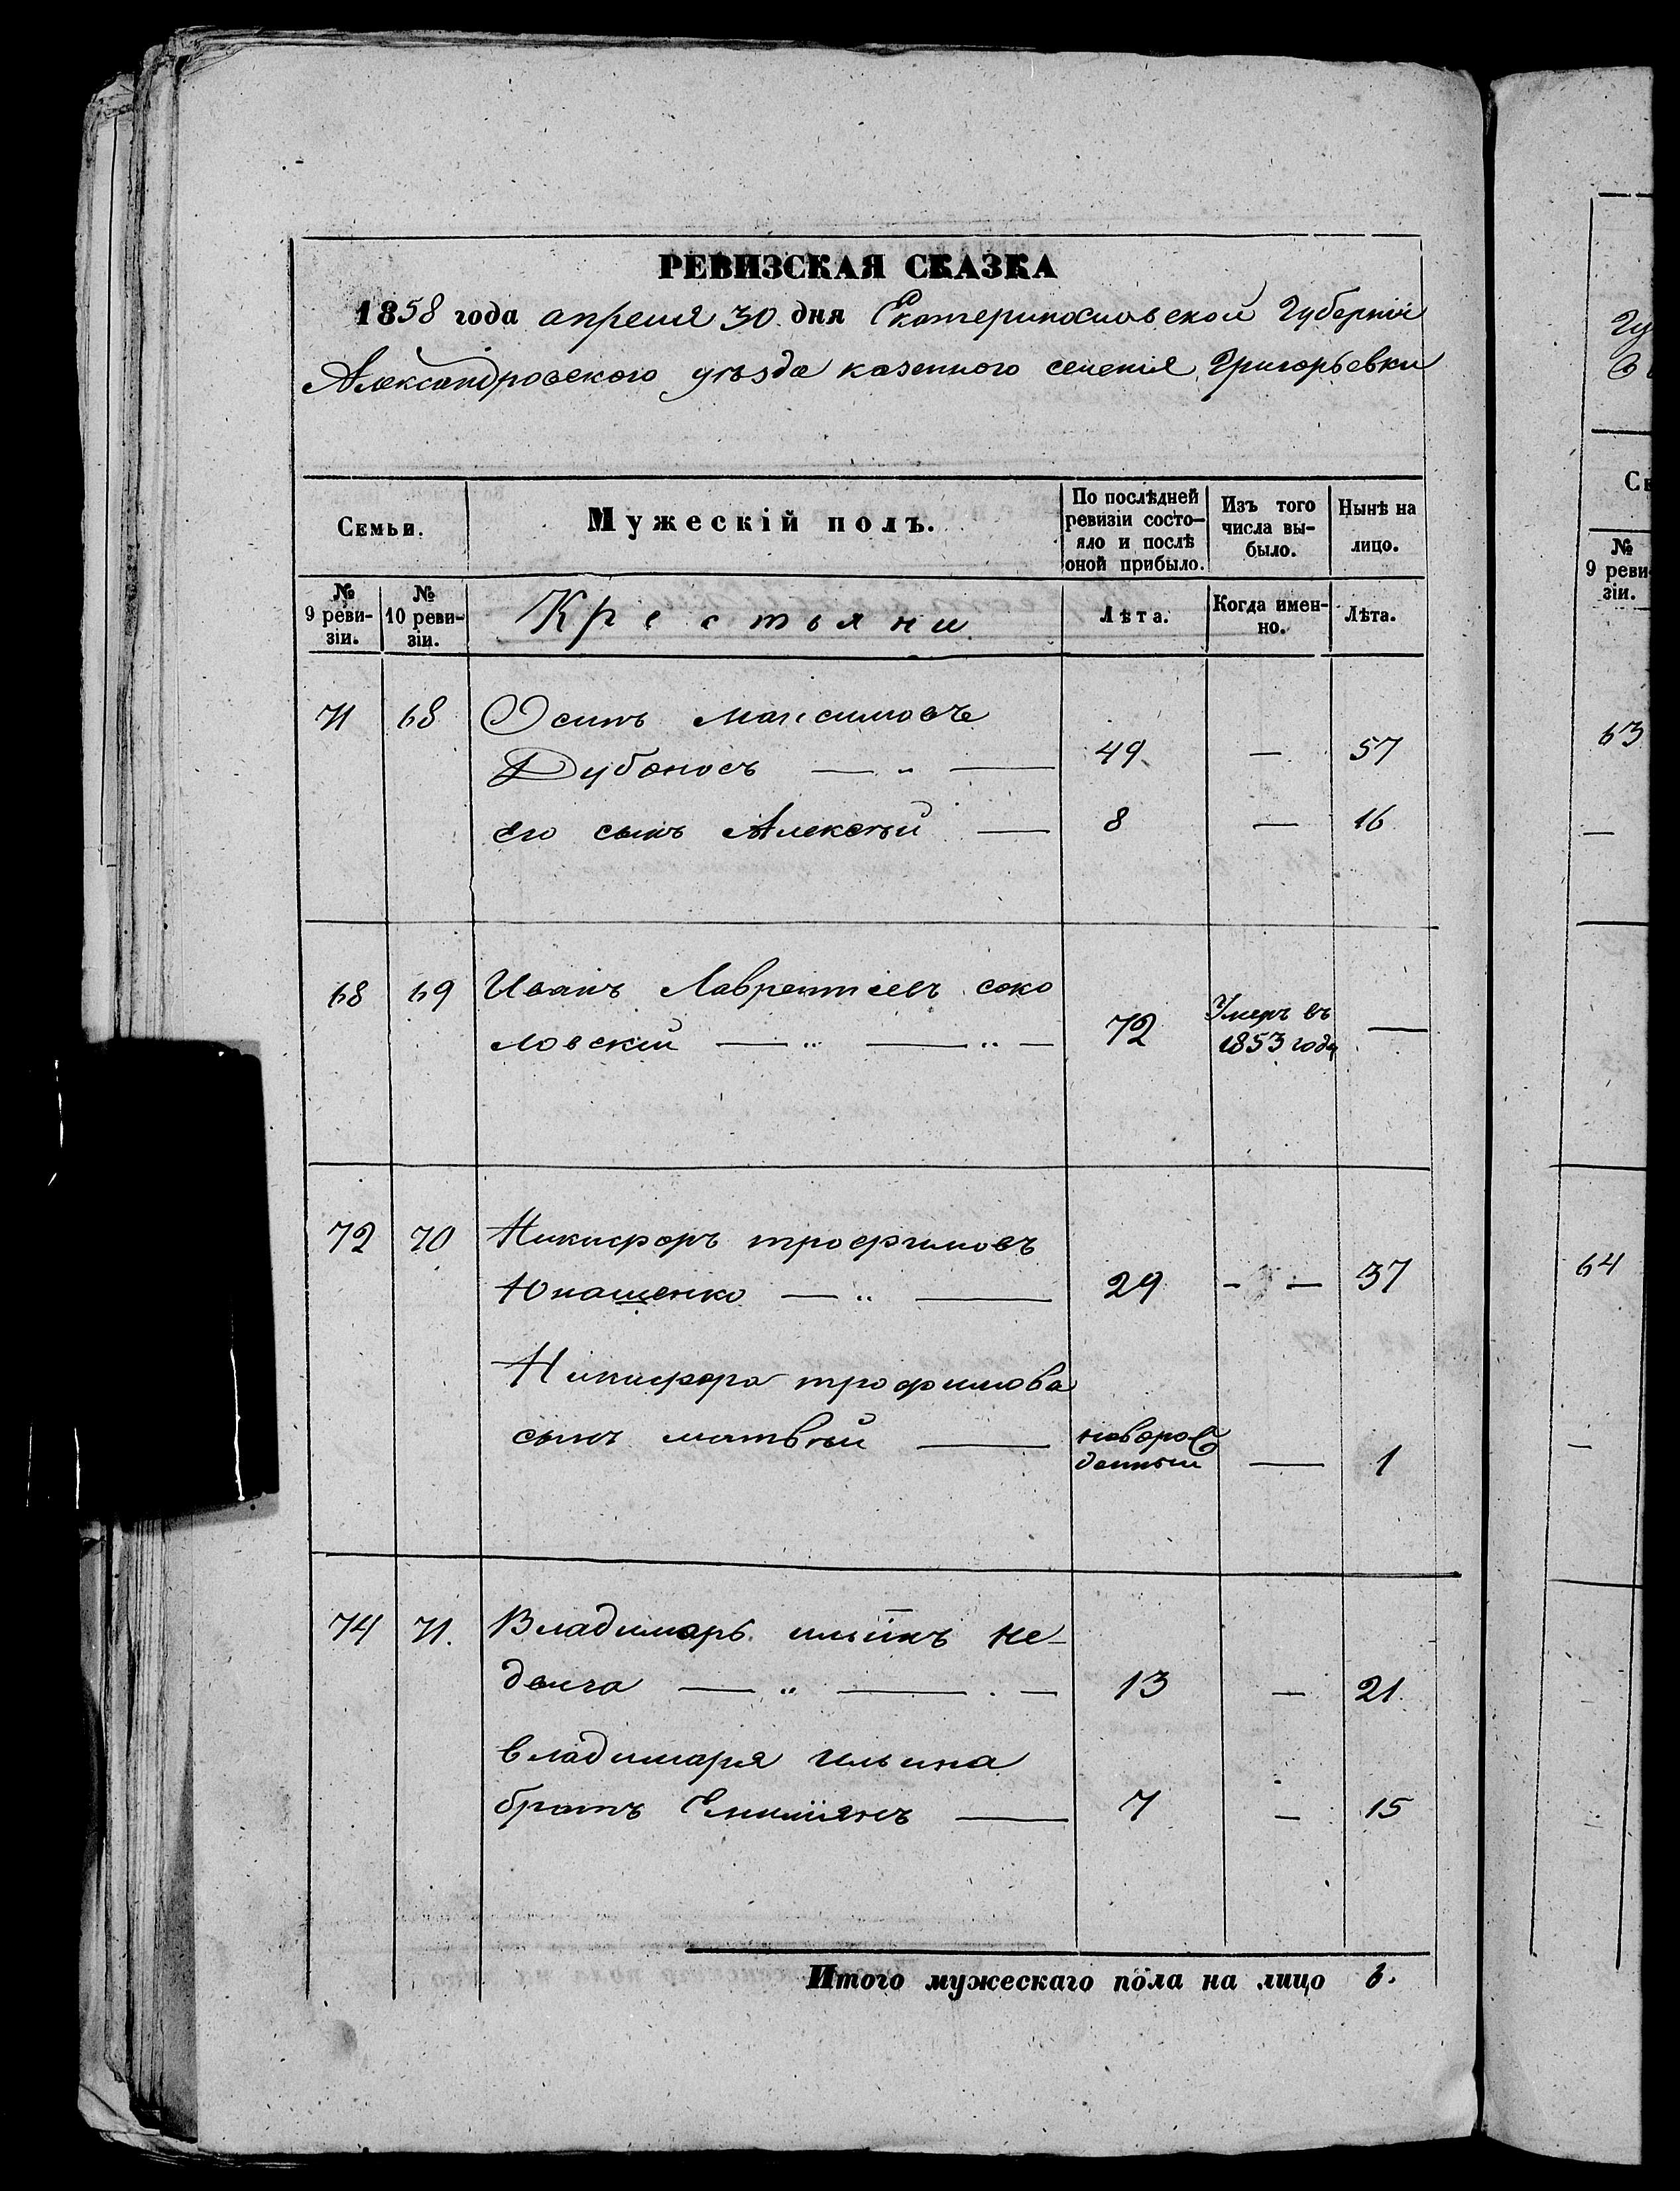 РЕВИЗСКАЯ СКАЗКА
1858 года апреля 30 дня Екатеринославской Губернии
Александровского уѣзда казенного селения Григорьевки
Семьи.
Мужескій полъ.
По послѣдней ревизіи состо-
яло и послѣ оной прибыло.
Изъ того числа вы-
было.
Нынѣ на лицо.
№ 9 реви-
зіи.
№ 10 реви-
зіи.
Крестьяни
Лѣта.
Когда имен-
но.
Лѣта.
71 68 Осипъ Максимовъ
Дубоносъ — „ — 49 — 57
его сынъ Алексѣй — 8 — 16
68 69 Иванъ Лаврентіевъ соко
ловскій — „ — „ — 72 Умеръ въ 1853 году —
72 70 Никифоръ трофимовъ
Юнашенко — „ — 29 — — 37
Никифора трофимова
сынъ матвѣй — новорож
денный — 1
74 71. Владимѣръ ильинъ Не-
долга — „ — . — 13 — 21.
владимира ильина
братъ Емилиянъ — 7 — 15
Итого мужескаго пола на лицо 6.
Гу
Се
№ 9 реви-
зіи.
63
—
64
—